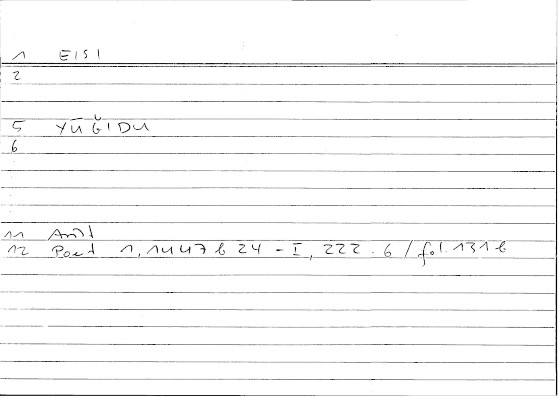 1 EISI
2
5 YŪǦIDU
6
11 Arist
12 Poet 1,1447b24 - I, 222.6 / fol.131b